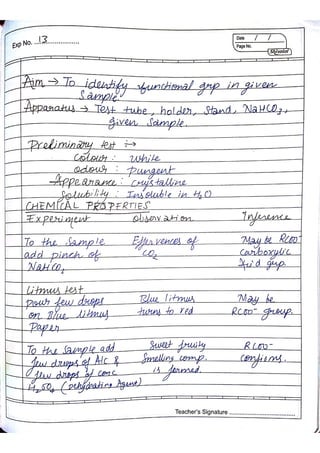 Exp No. 13
Date / /
Page No.
Aim → To identify functional grp in given
Sample.
Apparatus → Test tube, holder, Stand, NaHCO3,
given Sample.
Preliminary test :→
Colour : White
Odour : Pungent
Appearance : Crystalline
Solubility : Insoluble in H2O
CHEMICAL PROPERTIES
Experiment Observation Inference
To the Sample Effervences of May be RCOO-
add pinch of CO2 Carboxylic
NaHCO3 Acid grp.
Litmus test
pour few drops Blue litmus May be
on Blue litmus turns to red RCOO- group.
Paper
To the Sample add Sweet fruity RCOO-
few drops of Alc & Smelling comp. confirms.
few drops of conc is formed.
H2SO4 (Dehydrating Agent)
Teacher's Signature